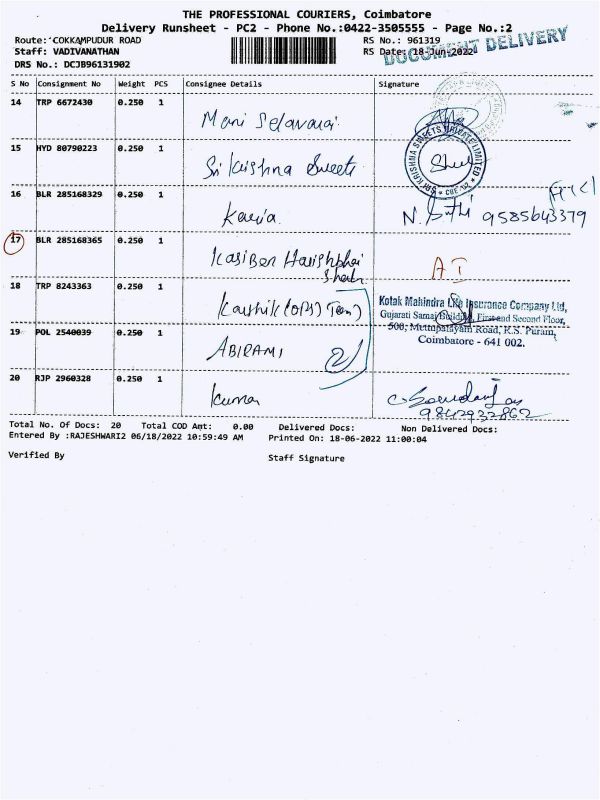 THE PROFESSIONAL COURIERS, Coimbatore
Delivery Runsheet - PC2 - Phone No.:0422-3505555 - Page No.:2
Route: COKKAMPUDUR ROAD RS No.: 961319
Staff: VADIVANATHAN RS Date: 18-Jun-2022
DOCUMENT DELIVERY
DRS No.: DCJB96131902
S No Consignment No Weight PCS Consignee Details Signature
14 TRP 6672430 0.250 1
Mani
15 HYD 80790223 0.250 1
Sri Krishna Sweets
SRI KRISHNA SWEETS PRIVATE LIMITED
16 BLR 285168329 0.250 1
9585643379
17 BLR 285168365 0.250 1
Kasiben Harishbhai
Shah
18 TRP 8243363 0.250 1
Kotak Mahindra Life Insurance Company Ltd,
Gujarati Samaj Building, First and Second Floor,
500, Mettupalayam Road, R.S. Puram,
Coimbatore - 641 002.
19 POL 2540039 0.250 1
ABIRAMI
20 RJP 2960328 0.250 1
Kumar
9842932862
Total No. Of Docs: 20 Total COD Amt: 0.00 Delivered Docs: Non Delivered Docs:
Entered By :RAJESHWARI2 06/18/2022 10:59:49 AM Printed On: 18-06-2022 11:00:04
Verified By Staff Signature